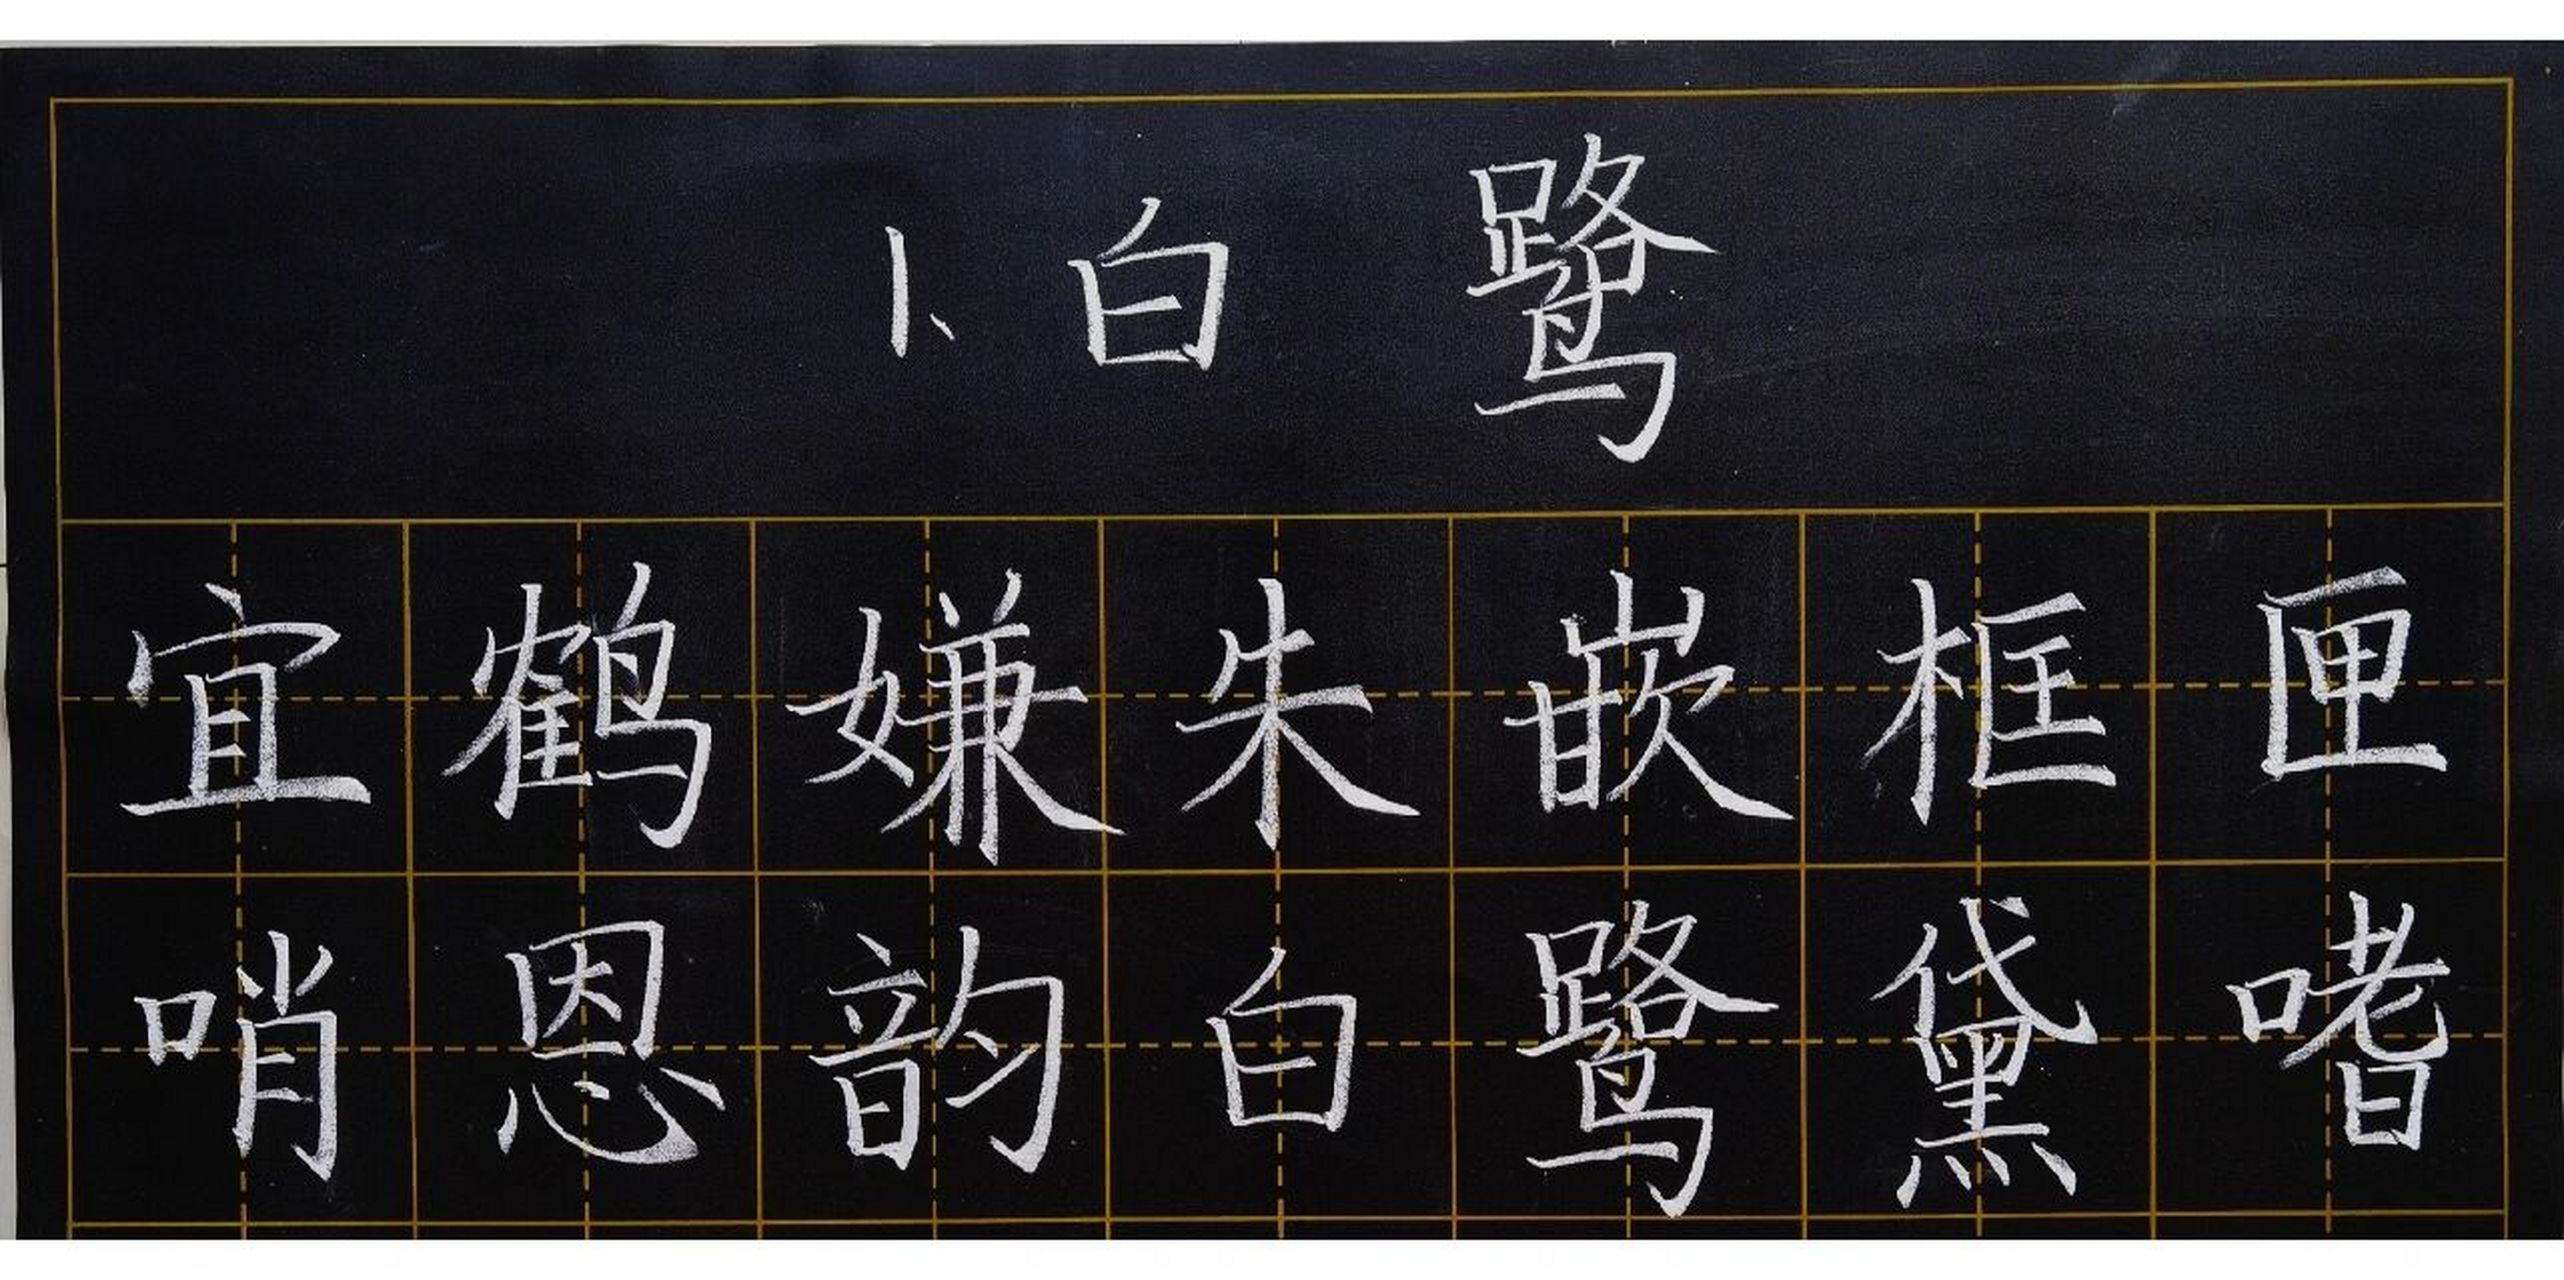 1、白鹭
宜鹤嫌朱嵌框匣
哨恩韵白鹭黛嗜